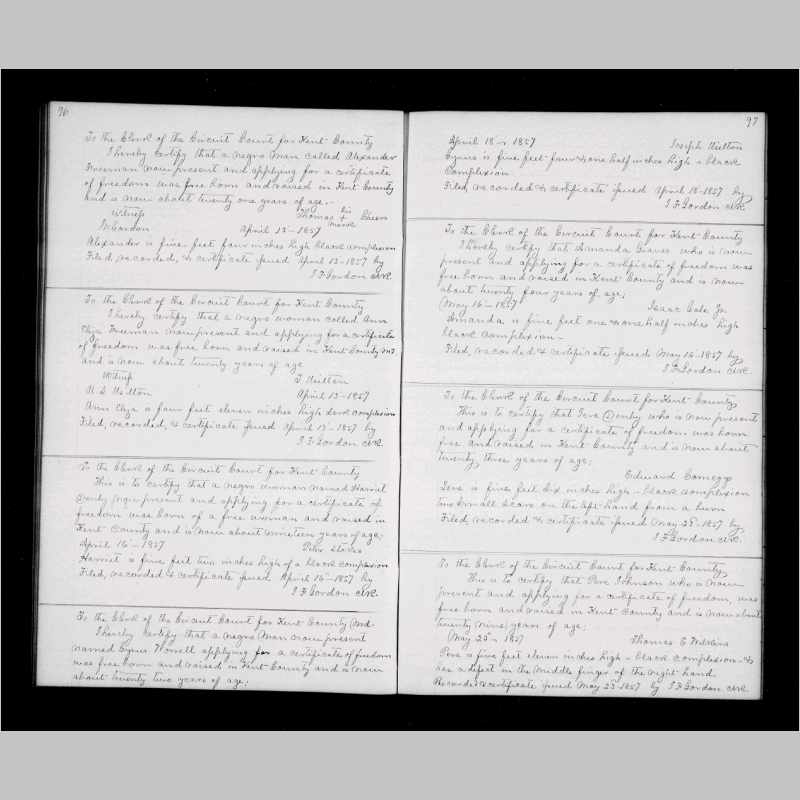 96
To the Clerk of the Circuit Court for Kent County
I hereby certify that a negro man called Alexander
Freeman now present and applying for a certificate
of freedom was free born and raised in Kent County
and is now about twenty one years of age.
Witness
Thomas his + mark
April 13 - 1857
Alexander is five feet four inches high black complexion
Filed, recorded, & certificate issued April 13-1857 by
J F Gordon Clk.
To the Clerk of the Circuit Court for Kent County
I hereby certify that a negro woman called Ann
Eliza Freeman now present and applying for a certificate
of freedom was free born and raised in Kent County and
and is now about twenty years of age
Witness
April 13 - 1857
Ann Eliza is four feet eleven inches high dark complexion
Filed, recorded, & certificate issued April 13-1857 by
J F Gordon Clk.
To the Clerk of the Circuit Court for Kent County
This is to certify that a negro woman named Harriet
now present and applying for a certificate of
freedom was born of a free woman and raised in
Kent County and is now about nineteen years of age;
April 16 - 1857
Harriet is five feet two inches high of a black complexion
Filed, recorded & certificate issued April 16-1857 by
J F Gordon Clk.
To the Clerk of the Circuit Court for Kent County Md.
I hereby certify that a negro man now present
named Cyrus applying for a certificate of freedom
was free born and raised in Kent County and is now
about twenty two years of age;
97
April 18 - 1857
Cyrus is five feet four & one half inches high - black
Complexion
Filed, recorded & certificate issued April 18-1857 by
J F Gordon Clk.
To the Clerk of the Circuit Court for Kent County
I hereby certify that Amanda Graves who is now
present and applying for a certificate of freedom was
free born and raised in Kent County and is now
about twenty four years of age;
May 16 - 1857
Isaac Cale Jr.
Amanda is five feet one & one half inches high
black complexion -
Filed, recorded & certificate issued May 16-1857 by
J F Gordon Clk.
To the Clerk of the Circuit Court for Kent County
This is to certify that Pere Denby who is now present
and applying for a certificate of freedom was born
free and raised in Kent County and is now about
twenty three years of age;
Edward Comegys
Pere is five feet six inches high - black complexion
two small scars on the left hand from a burn
Filed, recorded & certificate issued May 25-1857 by
J F Gordon Clk.
To the Clerk of the Circuit Court for Kent County
This is to certify that Pere Johnson who is now
present and applying for a certificate of freedom, was
free born and raised in Kent County and is now about
twenty nine years of age;
May 25 - 1857
Thomas E Wilkins
Pere is five feet eleven inches high - black complexion - &
has a defect in the middle finger of the right hand
Recorded & certificate issued May 25-1857 by J F Gordon Clk